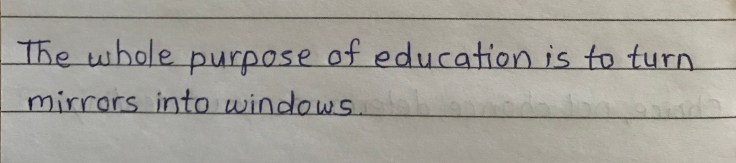 The whole purpose of education is to turn
mirrors into windows.